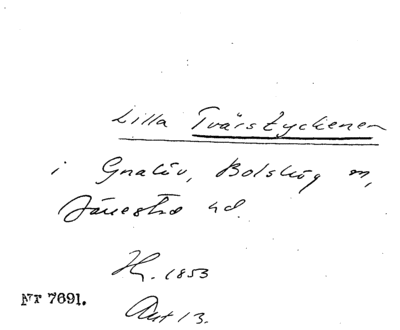 Lilla Tvärstyckenen
i Gnalöv, Bolshög sn,
Järrestad hd.
Hr. 1853
Akt 13.
Nr 7691.